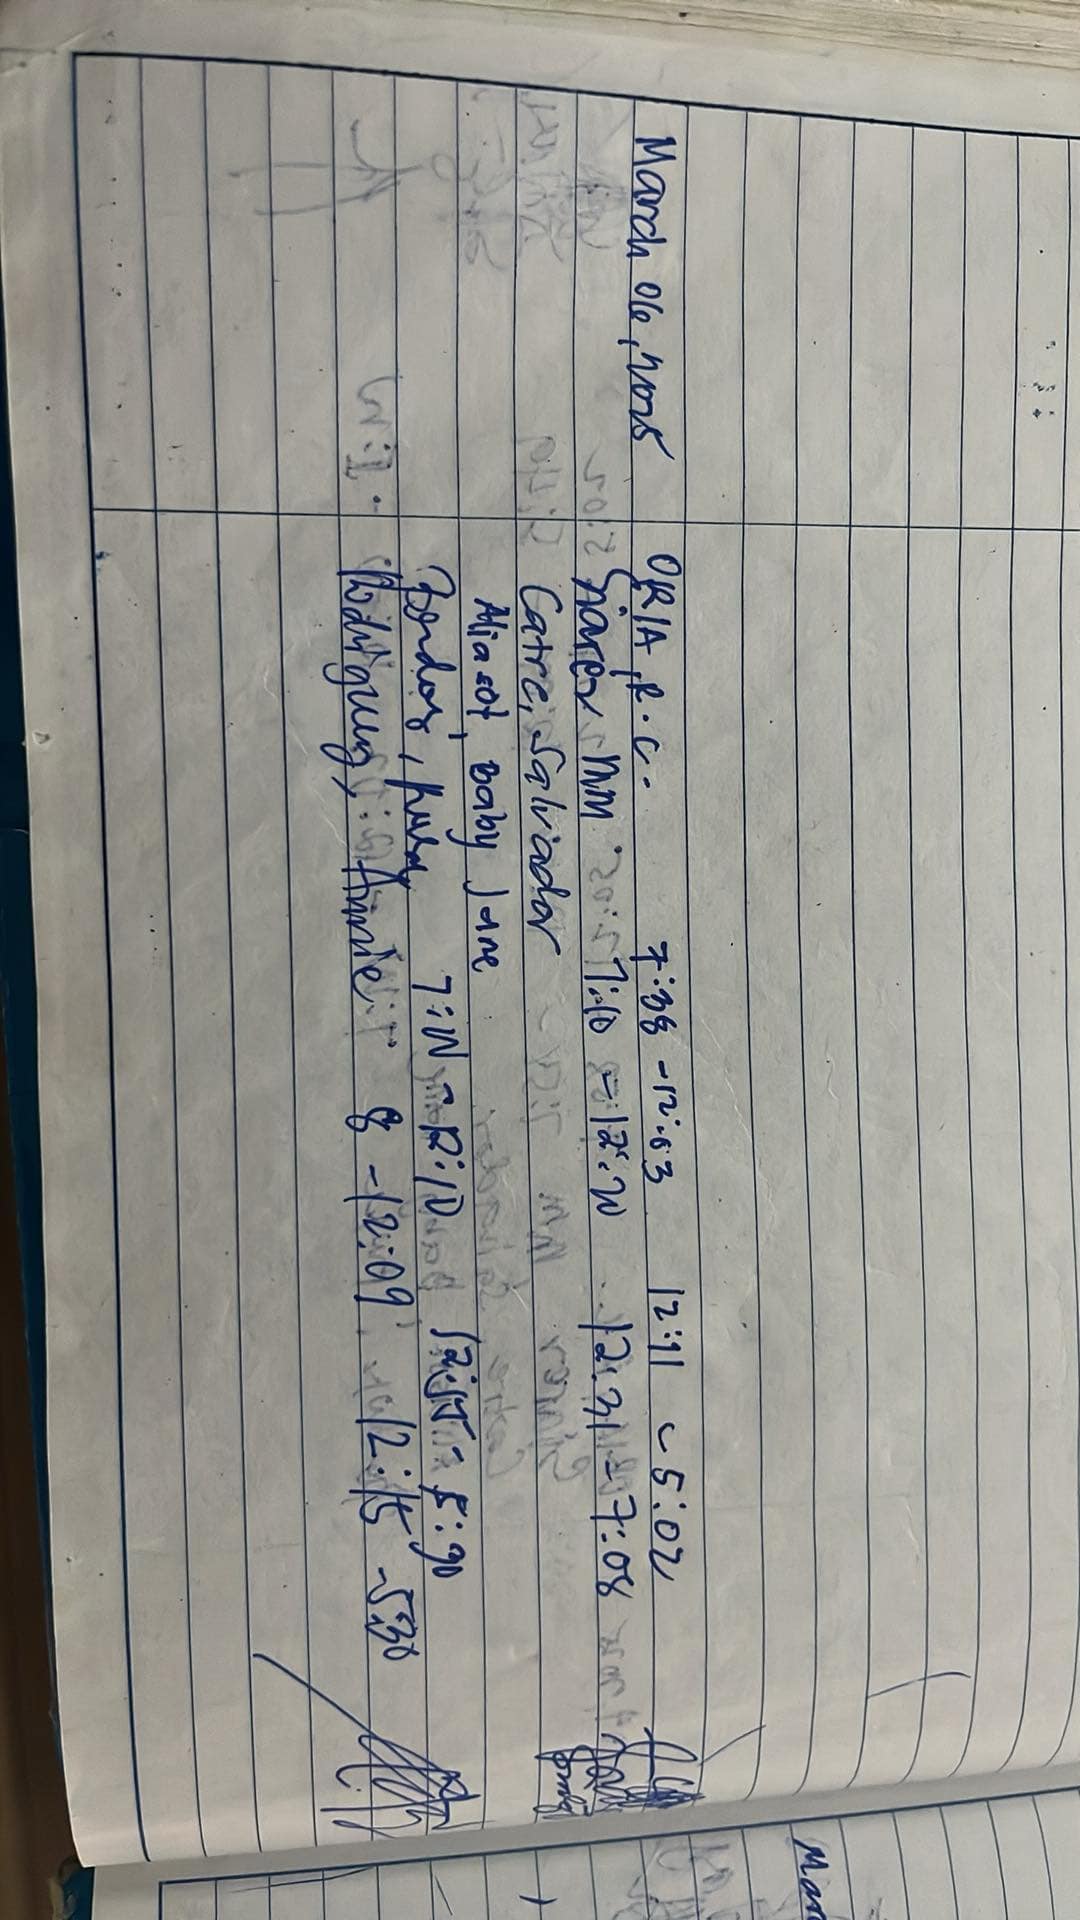 March 06, 2025
ORIA, R.C. 7:38 - 12:03 12:11 - 5:02
MM 7:10 - 12:20 12:31 - 7:08
Catre, Salvador
Miasot, Baby Jane
7:20 - 12:10 12:15 - 5:30
Rodriguez, Annie 8 - 12:09 12:15 - 5:30